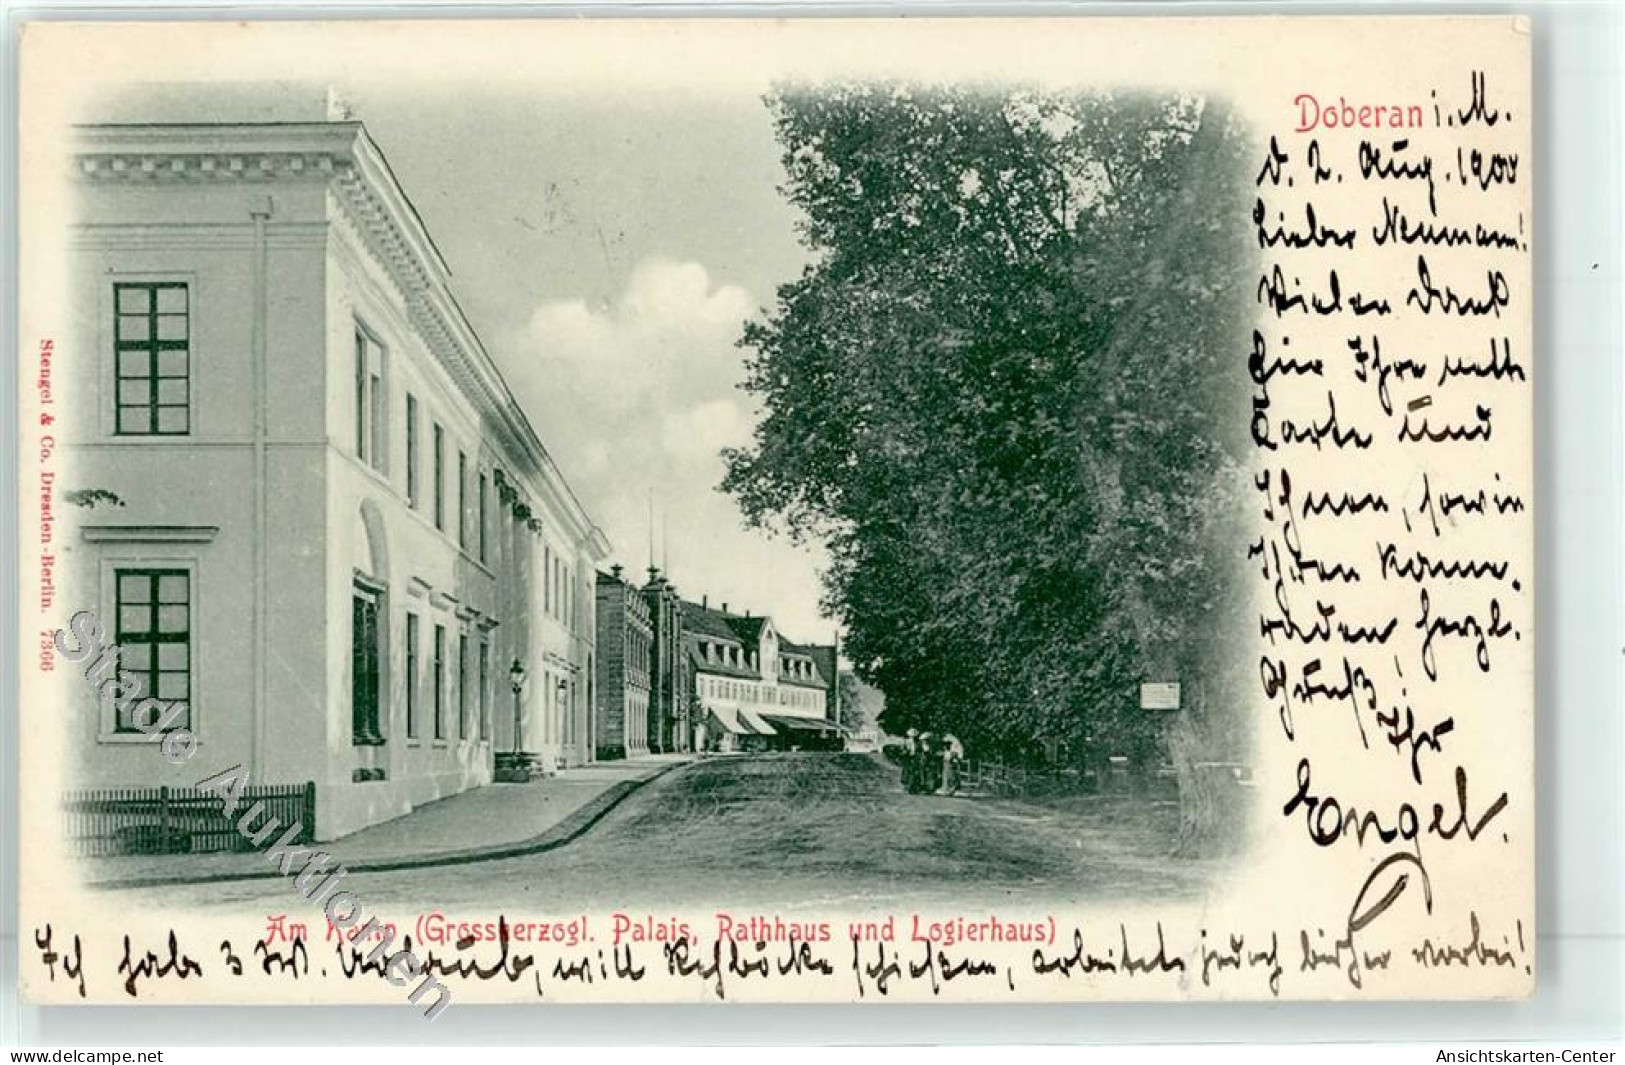 Doberan i. M.
d. 2. Aug. 1900
Lieber Neumann!
Vielen Dank
für Ihre nette
Karte und
Ihnen, sowie
Ihren Kame-
raden, herzl.
Gruß!
Ihr
Engel.
Am Kamp (Grossherzogl. Palais, Rathhaus und Logierhaus)
Ich habe 3 W. Urlaub, will Rehböcke schießen, arbeitete jedoch bisher vorbei!
Stengel & Co. Dresden-Berlin. 7366
Stade Auktionen
www.delcampe.net
Ansichtskarten-Center